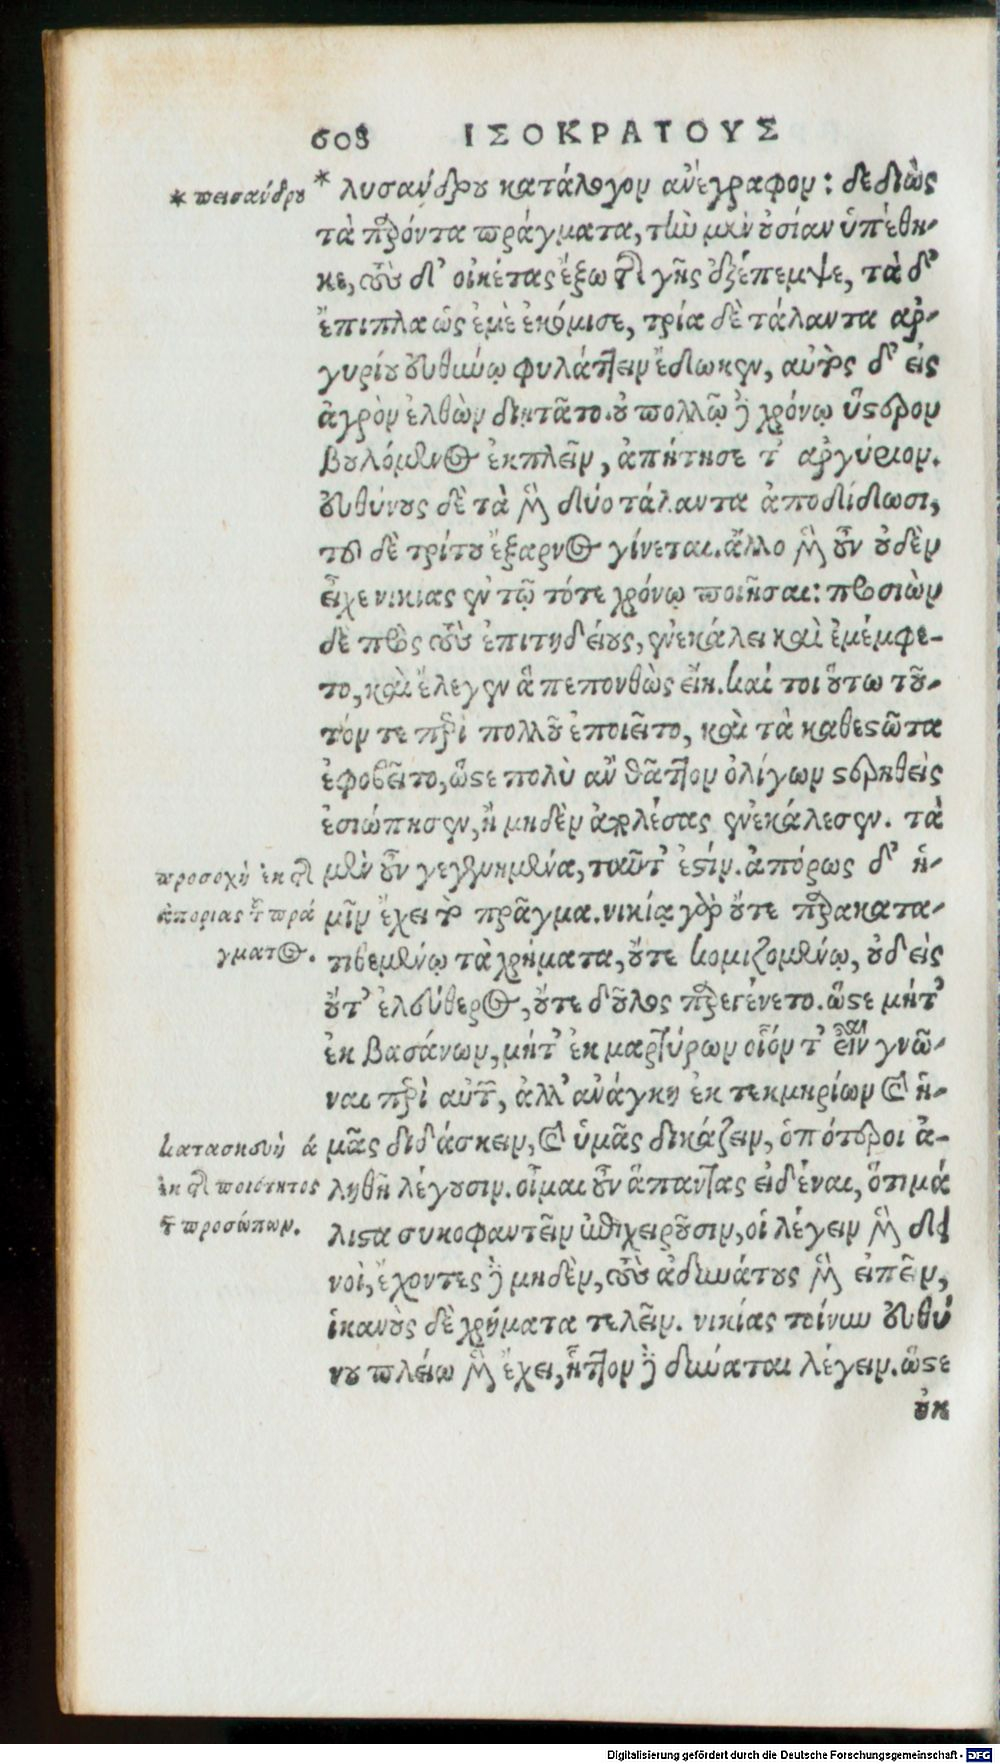 608 ΙΣΟΚΡΑΤΟΥΣ
* πεισάνδρου
* λυσάνδρου κατάλογον ἀνέγραφον: δεδιὼς
τὰ παρόντα πράγματα, τὴν μὲν οὐσίαν ὑπέθη-
κε, τοὺς δ' οἰκέτας ἔξω τῆς γῆς ἐξέπεμψε, τὰ δ'
ἔπιπλα ὡς ἐμὲ ἐκόμισε, τρία δὲ τάλαντα ἀρ-
γυρίου Εὐθύνῳ φυλάττειν ἔδωκεν, αὐτὸς δ' εἰς
ἀγρὸν ἐλθὼν διῃτᾶτο. οὐ πολλῷ δὲ χρόνῳ ὕστερον
βουλόμενος ἐκπλεῖν, ἀπῄτησε τ' ἀργύριον.
Εὐθύνους δὲ τὰ μὲν δύο τάλαντα ἀποδίδωσι,
τοῦ δὲ τρίτου ἔξαρνος γίνεται. ἄλλο μὲν οὖν οὐδὲν
εἶχε νικίας ἐν τῷ τότε χρόνῳ ποιῆσαι: προσιὼν
δὲ πρὸς τοὺς ἐπιτηδείους, ἐνεκάλει καὶ ἐμέμφε-
το, καὶ ἔλεγεν ἃ πεπονθὼς εἴη. καί τοι οὕτω τοῦ-
τόν τε περὶ πολλοῦ ἐποιεῖτο, καὶ τὰ καθεστῶτα
ἐφοβεῖτο, ὥστε πολὺ ἂν θᾶττον ὀλίγων στερηθεὶς
ἐσιώπησεν, ἢ μηδὲν ἀπολέσας ἐνεκάλεσεν. τὰ
προσοχὴ ἐκ τῆς
μὲν οὖν γεγενημένα, ταῦτ' ἐστίν. ἀπόρως δ' ἡ-
ἀπορίας τοῦ πρά
μῖν ἔχει τὸ πρᾶγμα. νικίᾳ γὰρ οὔτε παρακατα-
γματος.
τιθεμένῳ τὰ χρήματα, οὔτε κομιζομένῳ, οὐδεὶς
οὔτ' ἐλεύθερος, οὔτε δοῦλος παρεγένετο. ὥστε μήτ'
ἐκ βασάνων, μήτ' ἐκ μαρτύρων οἷόν τ' εἶναι γνῶ-
ναι περὶ αὐτῶν, ἀλλ' ἀνάγκη ἐκ τεκμηρίων καὶ ἡ-
κατασκευὴ ἁ
μᾶς διδάσκειν, καὶ ὑμᾶς δικάζειν, ὁπότεροι ἀ-
ἐκ τῆς ποιότητος
ληθῆ λέγουσιν. οἶμαι οὖν ἅπαντας εἰδέναι, ὅτι μά
τῶν προσώπων.
λιστα συκοφαντεῖν ἐπιχειροῦσιν, οἱ λέγειν μὲν δει
νοὶ, ἔχοντες δὲ μηδὲν, τοὺς ἀδυνάτους μὲν εἰπεῖν,
ἱκανοὺς δὲ χρήματα τελεῖν. νικίας τοίνυν Εὐθύ
νου πλείω μὲν ἔχει, ἧττον δὲ δύναται λέγειν. ὥστε
οὐκ
Digitalisierung gefördert durch die Deutsche Forschungsgemeinschaft - DFG